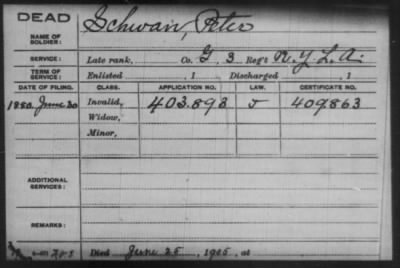 DEAD
NAME OF SOLDIER: Schwan, Peter
SERVICE: Late rank, Co. G, 3 Reg't N.Y.L.A.
TERM OF SERVICE: Enlisted , 1 Discharged , 1
DATE OF FILING. CLASS. APPLICATION NO. LAW. CERTIFICATE NO.
1880. June 30 Invalid, 403.893 J 409.863
Widow,
Minor,
ADDITIONAL SERVICES:
REMARKS:
Died June 25, 1905, at